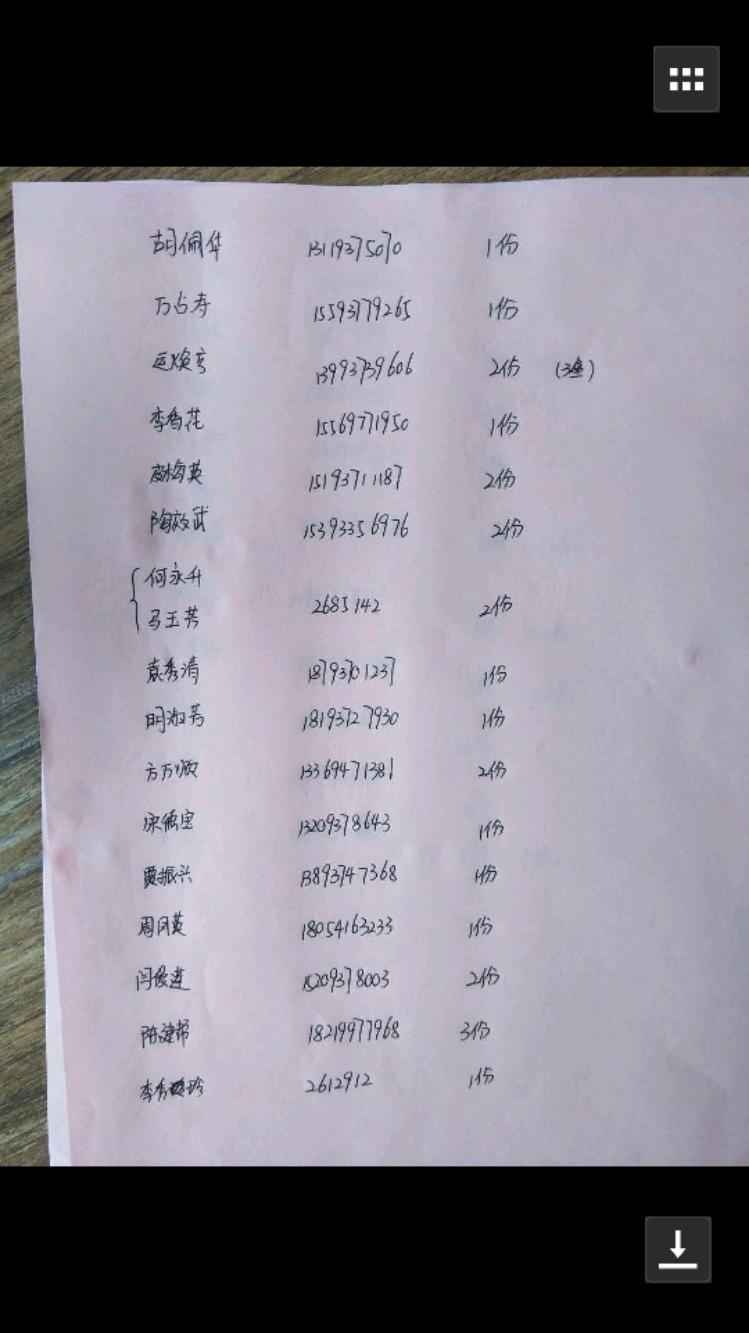 胡佩华 13119375070 1份
万占寿 15593779265 1份
13993739606 2份 (3盒)
李香花 15569771950 1份
高梅英 15193711187 2份
陶效武 15393356976 2份
何永升
马玉芳 2685142 2份
袁秀清 18793701237 1份
明淑芳 18193727930 1份
方万顺 13369471381 2份
徐德宝 13209378643 1份
贾振兴 13893747368 1份
周风英 18054163233 1份
闫俊进 15209378003 2份
陈建帮 18219977968 3份
李秀珍 2612912 1份